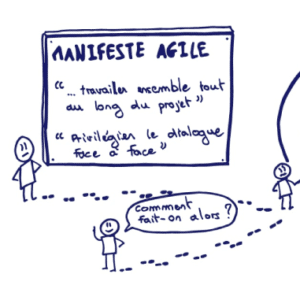 MANIFESTE AGILE
“... travailler ensemble tout
au long du projet”
“Privilégier le dialogue
face à face”
Comment
fait-on alors ?